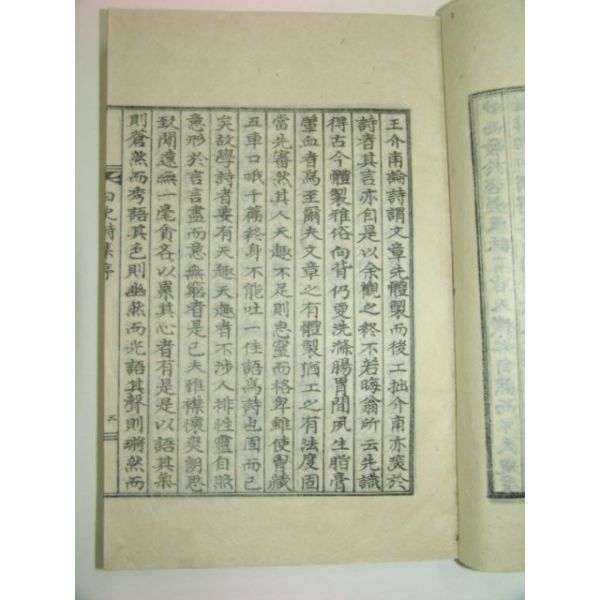 王介甫論詩謂文章先體製而後工拙介甫亦深於
詩者其言亦自是以余觀之終不若晦翁所云先識
得古今體製雅俗向背仍更洗滌腸胃間夙生脂膏
葷血者爲至爾夫文章之有體製猶工之有法度固
當先審然其人天趣不足則思窒而格卑雖使胷藏
五車口哦千篇終身不能吐一佳語爲詩也固而已
矣故學詩者要有天趣天趣者不涉人排性靈自照
意形於言言盡而意無窮者是已夫惟襟懷爽朗思
致閒遠無一毫貪吝以累其心者有是是以語其氣
則蒼然而秀語其色則幽然而光語其聲則鏘然而
白史詩集序
三